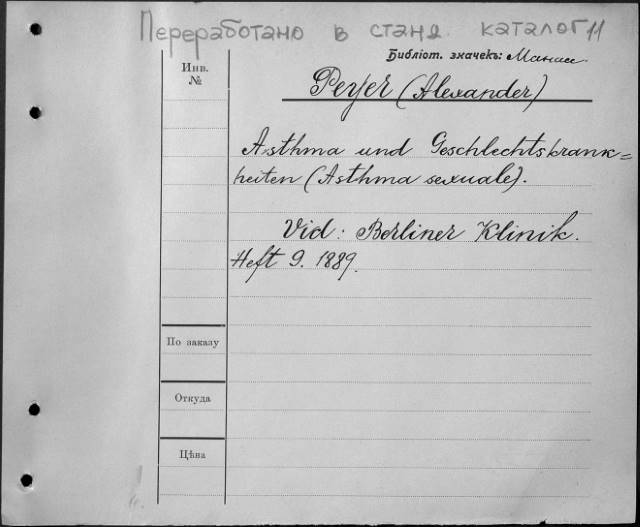 Переработано в станд. каталог 11
Библіот. значекъ: Манасс
Инв.
№
Peyer (Alexander)
Asthma und Geschlechtskrank=
heiten (Asthma sexuale).
Vid: Berliner Klinik.
Heft 9. 1889.
По заказу
Откуда
Цѣна